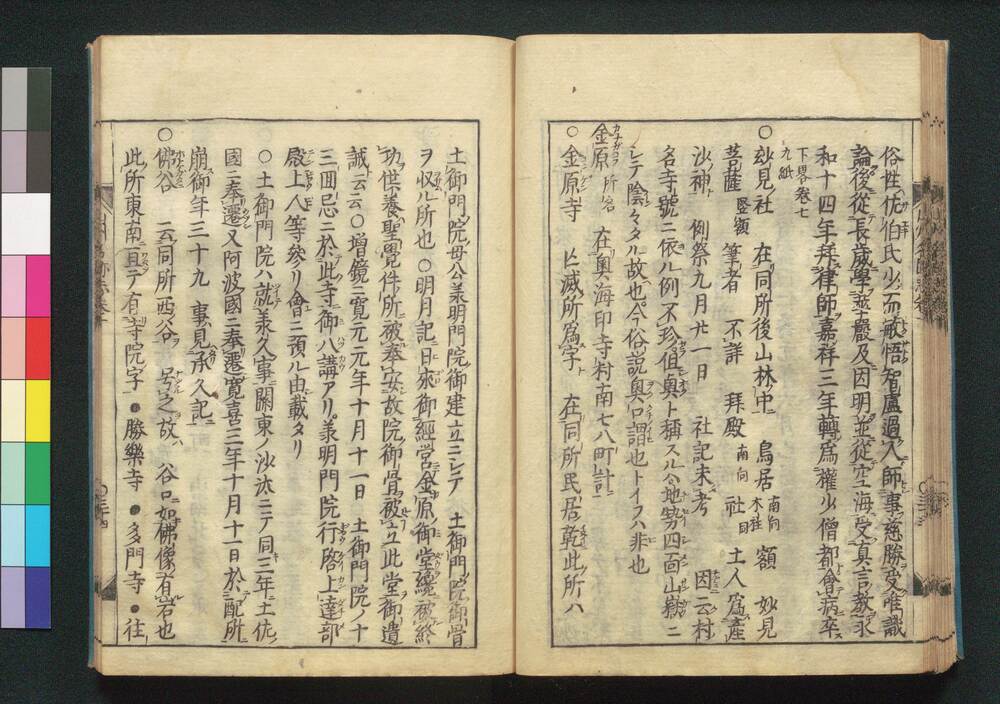 俗姓佐伯氏少而敏悟智慮過人師事慈勝受唯識
論後從長歳學華嚴及因明並從空海受真言教承
和十四年拜律師嘉祥三年轉爲權少僧都會病卒
下畧卷七
九紙
○玅見社 在同所後山林中 鳥居 南向木柱 額 妙見
菩薩 竪額 筆者 不詳 拜殿 南向 社 同 土人爲產
沙神 例祭九月廿一日 社記未考 因云村
名寺號ニ依ル例不珍但奥ト稱スル叓地勢四面山嶽ニ
シテ陰々タル故也今俗説奥口謂也トイフハ非也
金原 所名 在奥海印寺村南七八町計
○金原寺 亡滅所爲字 在同所民居乾此所ハ
土御門院母公美明門院御建立ニシテ 土御門院御骨
ヲ収ル所也○明月記曰來御經営金原御堂纔被終
功世養聖覺件所被奉安故院御骨被立此堂御遺
誠云云○增鏡ニ寛元元年十月十一日 土御門院ノ十
三回忌ニ於此寺御八講アリ美明門院行啓上達部
殿上人等參リ會ニ預ル由載タリ
○土御門院ハ就美久事關東ノ沙汰ニテ同三年土佐
國ニ奉遷又阿波國ニ奉遷寛喜三年十月十一日於配所
崩御年三十九 事見承久記
○佛谷 一云同所西谷 号之故ハ 谷口如佛像有岩也
此所東南ニ亘テ有寺院字●勝樂寺●多門寺●往